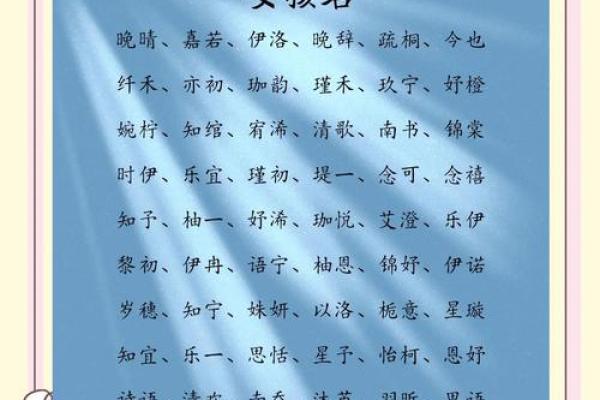 女孩名
晚晴、嘉若、伊洛、晚辞、疏桐、今也
纤禾、亦初、珈韵、瑾禾、玖宁、妤橙
婉柠、知绾、宥浠、清歌、南书、锦棠
时伊、乐宜、瑾初、堤一、念可、念禧
知予、柚一、妤浠、珈悦、艾澄、乐伊
黎初、伊冉、语宁、柚恩、锦妤、伊诺
岁穗、知宁、姝妍、以洛、栀意、星璇
知宜、乐一、思恬、星予、怡柯、恩妤
诗语、清欢、南乔、沐英、羽昕、思语